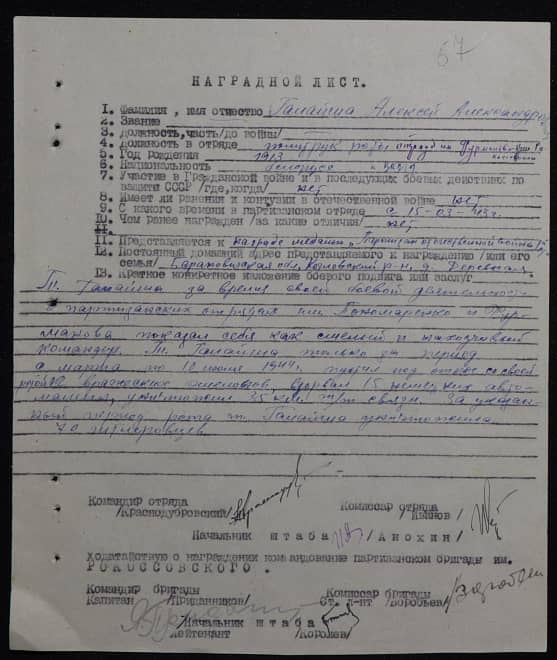 67
НАГРАДНОЙ ЛИСТ.
1. Фамилия, имя отчество Галайша Алексей Александрович
2. Звание
3. Должность, часть/до войны/
4. Должность в отряде политрук роты отряда им. Фурманова
5. Год рождения 1913
6. Национальность белорус
7. Участие в Гражданской войне и в последующих боевых действиях по
защите СССР /где,когда/ нет
8. Имеет ли ранения и контузии в отечественной войне нет
9. С какого времени в партизанском отряде с 15-03-43г.
10. Чем ранее награжден /за какие отличия/ нет
11. Представляется к награде медаль "Партизан отечественной войны
12. Постоянный домашний адрес представляемого к награждению /или его
семьи/ Барановичская обл. р-н, д. Деревная
13. Краткое конкретное изложение боевого подвига или заслуг
Т. Галайша за время своей боевой деятельности
в партизанских отрядах им. Пономаренко и Фур-
манова показал себя как смелый и находчивый
командир. Т. Галайша только за период
с марта по июля 1944г. пустил под откос со своей
ротой вражеских эшелонов, взорвал 15 немецких авто-
машин, уничтожил 35 клм т/т связи. За указан-
ный период рота т. Галайша уничтожила
70 гитлеровцев.
Командир отряда Комиссар отряда
/Краснодубровский/ /Иванов/
Начальник штаба /Анохин/
Ходатайствую о награждении командование партизанском бригады им.
РОКОССОВСКОГО.
Командир бригады Комиссар бригады
Капитан /Приданников/ Ст. л-нт /Воробьев/
Начальник штаба
Лейтенант /Королев/